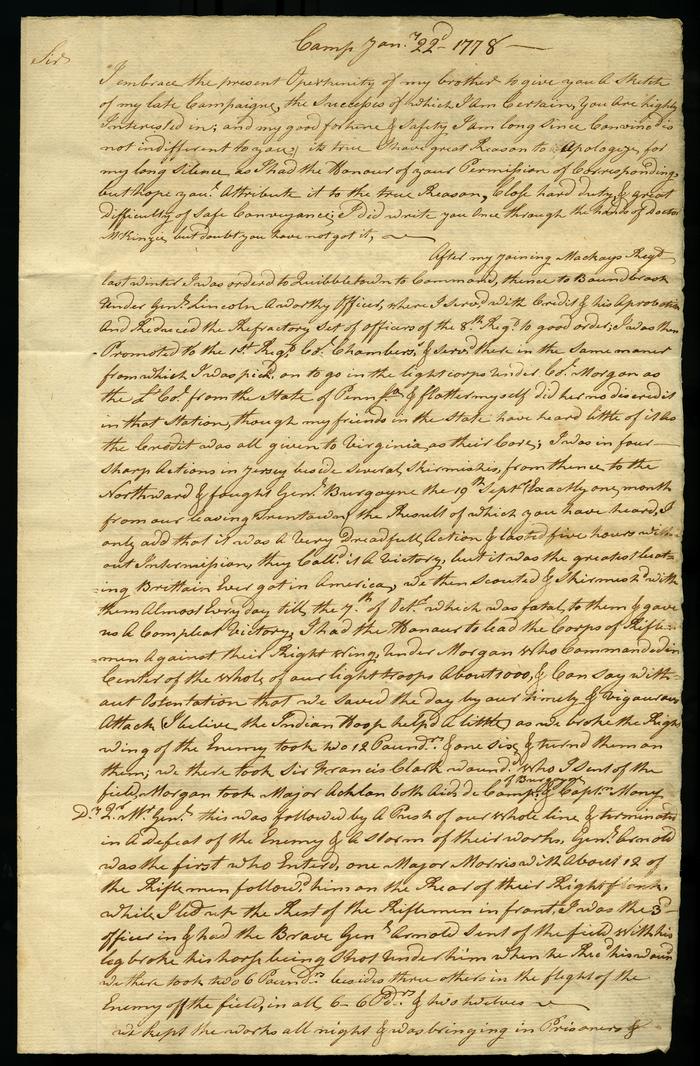 Camp Jany. 22d. 1778
Sir
I embrace the present Opertunity of my brother to give you A Sketch
of my late Campaigne, the Successes of which I am Certain, you are highly
Interested in; and my good fortune & Safety I am long Since Convinc'd is
not indifferent to you; its true I have great Reason to Apologize for
my long Silence as I had the Honour of your Permission of Corresponding,
but hope you'l Attribute it to the true Reason, Close hard Duty, & great
difficulty of Safe Conveyance; I did write you Once through the hands of Doctor
McKinzie, but doubt you have not got it,
After my Joining Mackays Regt.
last winter I was order'd to Quibbletown to Command, thence to Bound brook
Under Genl. Lincoln A worthy Officer, where I Serv'd with Credit & his Aprobation
And Reduced the Refractory Set of officers of the 8th. Regt. to good order; I was then
Promoted to the 1st. Regt. Col. Chambers, & Serv'd there in the Same maner
from which I was pick'd on to go in the light corps under Col. Morgan as
the Lt. Col. from the State of Pennsa. & flatter myself did her no discredit
in that Station, though my friends in the State have heard little of it as
the Credit was all given to Virginia, as their Core; I was in four
Sharp Actions in Jersey beside Several Skirmishes, from thence to the
Northward & fought Genl. Burgoyne the 19th. Septr. Exactly one month
from our leaving Trentown (the Result of which you have heard, I
only add that it was A Very Dreadfull Action & lasted five hours with-
out Intermission, they Call'd it A Victory, but it was the greatest beat-
ing Brittain Ever got in America, we then Scouted & Skirmish'd with
them Almost Every day till the 7th. of Octr. which was fatal to them & gave
us A Compleat Victory, I had the Honour to lead the Corps of Rifle-
men Against their Right wing, under Morgan who Commanded in
Center of the whole of our light troops About 1000, & Can say with-
out Ostentation that we Saved the day by our timely & Vigaurous
Attack (I belive the Indian Hoop help'd a little) as we broke the Right
wing of the Enemy took two 12 Poundrs. & one six, & turn'd them on
them; we there took Sir Francis Clark wound'd who I Sent of the
field, Morgan took Major Achlan both Aids de Camp of Burgoyne & Captn. Mony
Dy. Qr. Mr. Genl. this was followed by A Push of our whole line & terminated
in A defeat of the Enemy & A Storm of their works, Genl. Arnold
was the first who Enterd, one Major Morris with About 12 of
the Riflemen follow'd him on the Rear of their Right flank,
while I led up the Rest of the Riflemen in front, I was the 3d.
officer in & had the Brave Genl. Arnold Sent of the field with his
leg broke his horp being Shot under him when he his wound
we there took two 6 Poundrs. besides three others in the flight of the
Enemy off the field, in all, 6-6 Pdrs. & two twelves
we kept the works all night & was bringing in Prisoners &